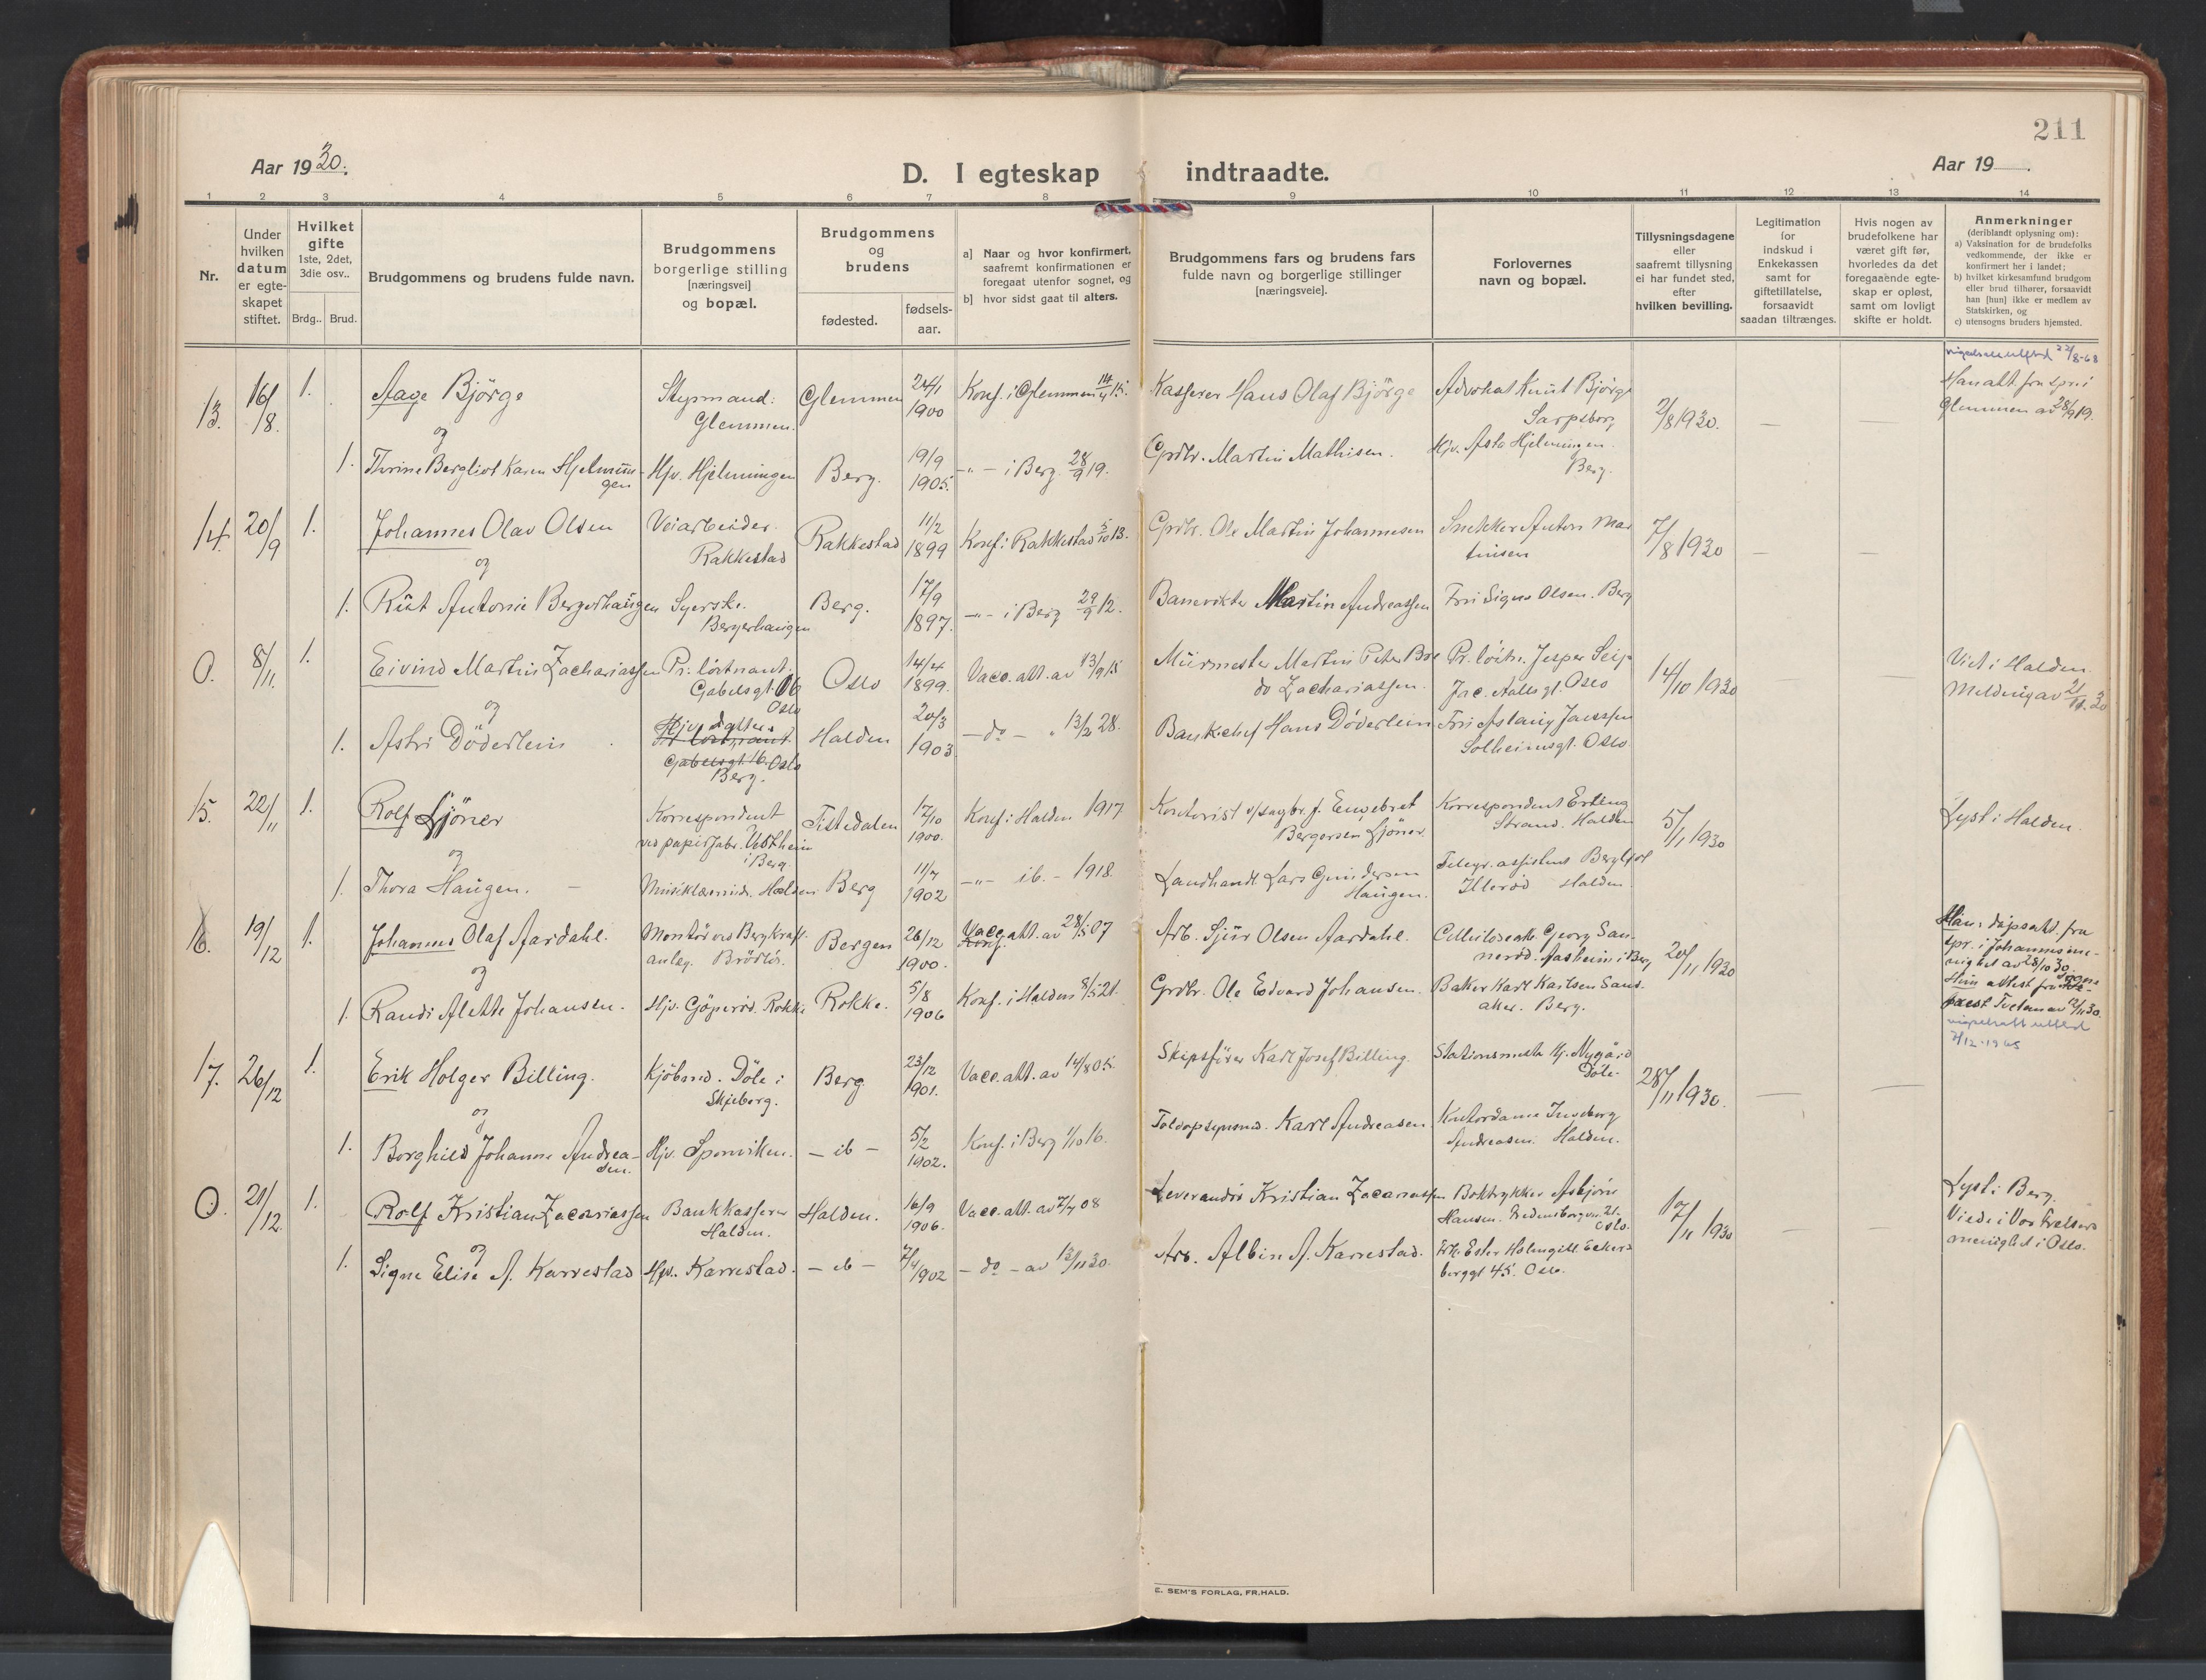 211
Aar 1930.
D. I egteskap indtraadte.
Aar 19
1 2 3 4 5 6 7 8 9 10 11 12 13 14
Nr.
Under hvilken datum er egte- skapet stiftet.
Hvilket gifte 1ste, 2det, 3die osv..
Brdg.. Brud.
Brudgommens og brudens fulde navn.
Brudgommens borgerlige stilling [næringsvei] og bopæl.
Brudgommens og brudens
fødested.
fødsels- aar.
a] Naar og hvor konfirmert, saafremt konfirmationen er foregaat utenfor sognet, og
b] hvor sidst gaat til alters.
Brudgommens fars og brudens fars fulde navn og borgerlige stillinger [næringsveie].
Forlovernes navn og bopæl.
Tillysningsdagene eller saafremt tillysning ei har fundet sted, efter hvilken bevilling.
Legitimation for indskud i Enkekassen samt for giftetillatelse, forsaavidt saadan tiltrænges.
Hvis nogen av brudefolkene har været gift før, hvorledes da det foregaaende egte- skap er opløst, samt om lovligt skifte er holdt.
Anmerkninger (deriblandt oplysning om):
a) Vaksination for de brudefolks vedkommende, der ikke er konfirmert her i landet;
b) hvilket kirkesamfund brudgom eller brud tilhører, forsaavidt han [hun] ikke er medlem av Statskirken, og
c) utensogns bruders hjemsted.
22/8-68
13. 16/8. 1. Aage Björge Styrmand: Glemmen 24/1 1900 Konf. i Glemmen 14/4 15. Kasserer Hans Olaf Björge Advokat Knut Björge 2/8 1930. — —
Glemmen. Sarpsborg
Glemmen av 28/9 19.
og
1. Thrine Bergliot Karen Hjelmun- gen Hjv. Hjelmungen Berg. 19/9 1905. —"— i Berg. 28/9 19. Grdbr. Martin Mathisen. Hjv. Asta Hjelmungen. Berg.
14. 20/9 1. Johannes Olav Olsen Veiarbeider. Rakkestad Rakkestad 11/2 1899 Konf. i Rakkestad 5/10 13. Grdbr. Ole Martin Johannesen Snekker Anton Mar tinsen 7/8 1930 — —
og
1. Rut Antonie Bergerhaugen Syerske. Bergerhaugen Berg. 17/9 1897. —"— i Berg 29/9 12. Banevokter Martin Andreassen Fru Signe Olsen. Berg
O. 8/11. 1. Eivind Martin Zachariassen Pr. løitnant. Gabelsgt. 16 Oslo Oslo 14/4 1899. Vacc. att. av 13/9 15 Mürmester Martin Peter Bre do Zachariassen. Pr. løitn. Jesper Seip Jac. Aallsgt. Oslo 14/10 1930
Viet i Halden.
Melding av 21/11. 30
og
1. Astri Döderlein Hjv. datter Pr. løitnant Gabelsgt. 16. Oslo Berg. Halden 20/3 1903 —do— " 13/2 28. Bankchef Hans Döderlein Fru Aslaug Janssen Solheimsgt. Oslo
15. 22/11 1. Rolf Ljöner Korrespondent ved papirfabr. Vestheim i Berg. Tistedalen 17/10 1900. Konf. i Halden 1917 Kontorist v/sagbr.f. Engebret Bergersen Ljöner. Korrespondent Erling Strand. Halden 5/11 1930
Lyst i Halden.
og
1. Thora Haugen. — Musiklærerinde. Halden Berg 11/7 1902 —"— ib. — 1918 Landhandl. Lars Gundersen Haugen. Telegr. assistent Bergljot Illerød Halden
16. 19/12 1. Johannes Olaf Aardahl. Montör ved Berg kraft- anleg. Brödløs. Bergen 26/12 1900. Vacc. att. av 28/5 07 Konf. Arb. Sjur Olsen Aardahl. Celluloseatb. Georg San- nerød. Aasheim i Berg 20/11 1930
Hans dåpsatt. fra spr. i Johannesme- nighet av 28/10 30.
Hun attest fra
Tvetan av 12/11 30.
2/12-1965
og
1. Randi Alette Johansen. Hjv. Göperöd. Rokke Rokke. 5/8 1906 Konf. i Halden 8/5 21. Grdbr. Ole Edvard Johansen. Baker Karl Karlsen Sand- aker. Berg.
17. 26/12 1. Erik Holger Billing. Kjöbmd. Döle i Skjeberg. Berg 23/12 1901. Vacc. att. av 14/8 05. Skipsfører Karl Josef Billing. Stationsmest. Hj. Nygård Döle. 28/11 1930. — —
og
1. Borghild Johanne Andrea- sen. Hjv. Sponviken. — ib — 5/2 1902. Konf. i Berg 1/10 16. Toldopsynsmd. Karl Andreasen Kontordame Ingeborg Andreasen. Halden.
O. 21/12 1. Rolf Kristian Zacariassen Bankkasserer Halden. Halden. 16/9 1906. Vacc. att. av 2/7 08 Leverandör Kristian Zacariassen Boktrykker Asbjörn Hansen. Fredensborgvn. 21. Oslo. 17/11 1930 — —
Lyst i Berg.
Viede i Vor Frelsers menighet i Oslo.
og
1. Signe Elise A. Karrestad Hjv. Karrestad. — ib — 7/4 1902 — do — av 13/11 30. Arb. Albin A. Karrestad. Frk. Ester Holmgill. Ekers- berggt 45. Oslo.
E. SEM'S FORLAG, FR.HALD.